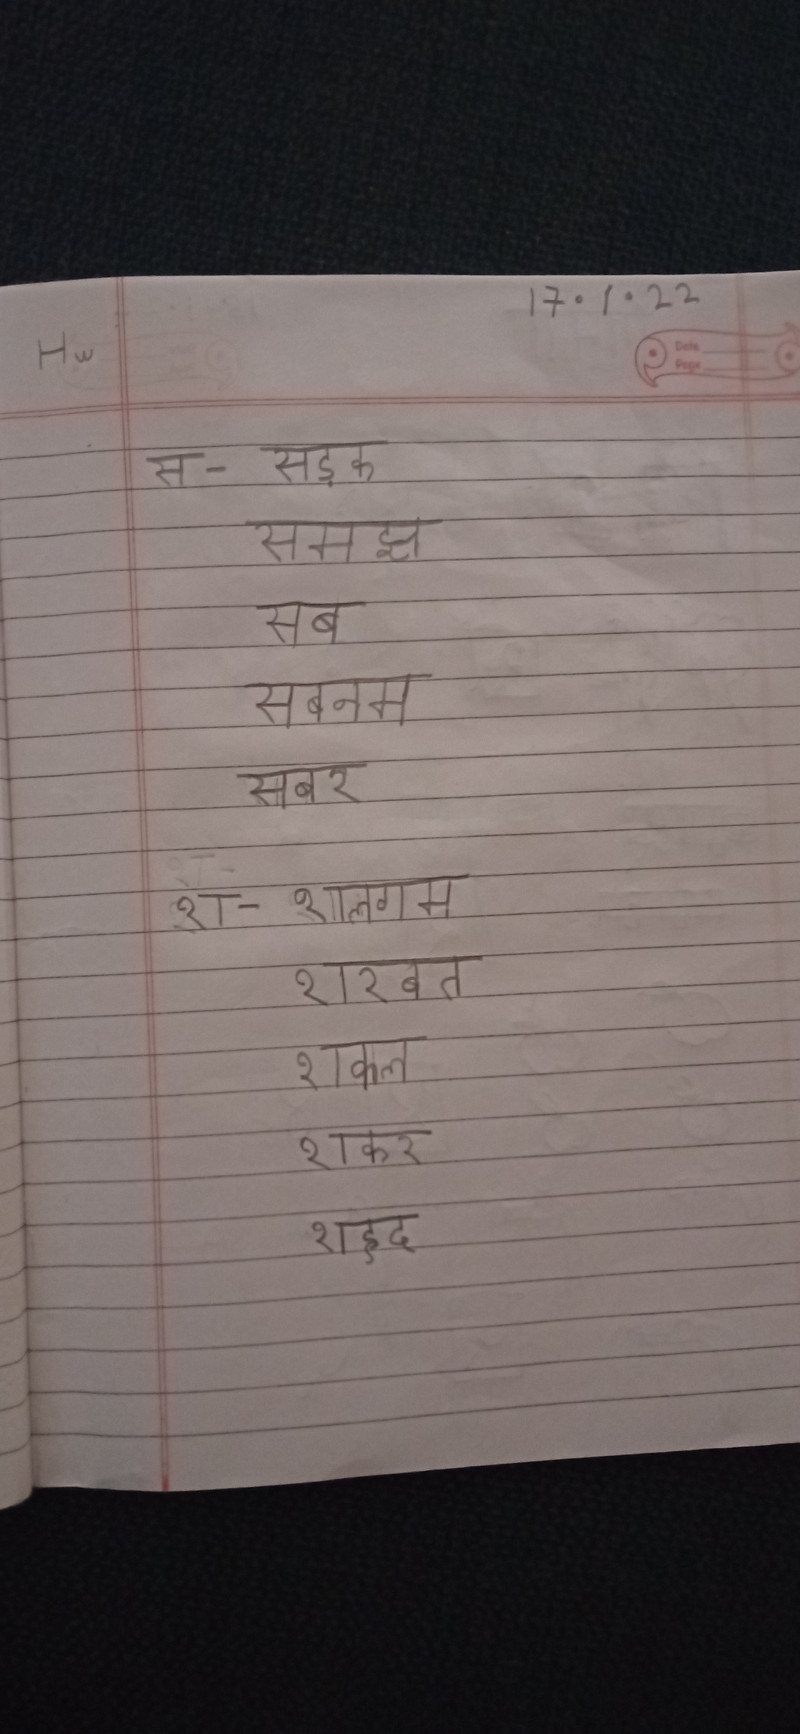 17.1.22
Hw
Date
Page
स - सड़क
समझ
सब
सबनम
सबर
श - शलगम
शरबत
शकल
शकर
शहद